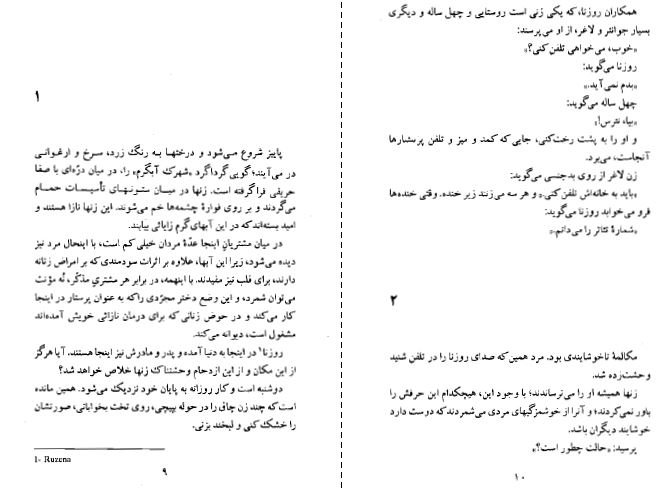 ۱
پاییز شروع می‌شود و درختها به رنگ زرد، سرخ و ارغوانی
در می‌آیند؛ گویی گرداگرد «شهرک آبگرم» را، در میان دره‌ای با صفا
حریقی فراگرفته است. زنها در میان ستونهای تأسیسات حمام
می‌گردند و بر روی فوارهٔ چشمه‌ها خم می‌شوند. این زنها نازا هستند و
امید بسته‌اند که در این آبهای گرم زایائی بیابند.
در میان مشتریان اینجا عدّهٔ مردان خیلی کم است، با اینحال مرد نیز
دیده می‌شود، زیرا این آبها، علاوه بر اثرات سودمندی که بر امراض زنانه
دارند، برای قلب نیز مفیدند. با اینهمه، در برابر هر مشتری مذکّر، نُه مؤنث
می‌توان شمرد، و این وضع دختر مجرّدی را که به عنوان پرستار در اینجا
کار می‌کند و در حوض زنانی که برای درمان نازائی خویش آمده‌اند
مشغول است، دیوانه می‌کند.
روزنا۱ در اینجا به دنیا آمده و پدر و مادرش نیز اینجا هستند. آیا هرگز
از این مکان و از این ازدحام وحشتناک زنها خلاص خواهد شد؟
دوشنبه است و کار روزانه به پایان خود نزدیک می‌شود. همین مانده
است که چند زن چاق را در حوله بپیچی، روی تخت بخوابانی، صورتشان
را خشک کنی و لبخند بزنی.
1- Ruzena
۹
همکاران روزنا، که یکی زنی است روستایی و چهل ساله و دیگری
بسیار جوانتر و لاغر، از او می‌پرسند:
«خوب، می‌خواهی تلفن کنی؟»
روزنا می‌گوید:
«بدم نمی‌آید.»
چهل ساله می‌گوید:
«بیا، نترس!»
و او را به پشت رخت‌کنی، جایی که کمد و میز و تلفن پرستارها
آنجاست، می‌برد.
زن لاغر از روی بدجنسی می‌گوید:
«باید به خانه‌اش تلفن کنی.» و هر سه می‌زنند زیر خنده. وقتی خنده‌ها
فرو می‌خوابد روزنا می‌گوید:
«شمارهٔ تئاتر را می‌دانم.»
۲
مکالمهٔ ناخوشایندی بود. مرد همین که صدای روزنا را در تلفن شنید
وحشت‌زده شد.
زنها همیشه او را می‌ترساندند؛ با وجود این، هیچکدام این حرفش را
باور نمی‌کردند؛ و آنرا از خوشمزگیهای مردی می‌شمردند که دوست دارد
خوشایند دیگران باشد.
پرسید: «حالت چطور است؟»
۱۰